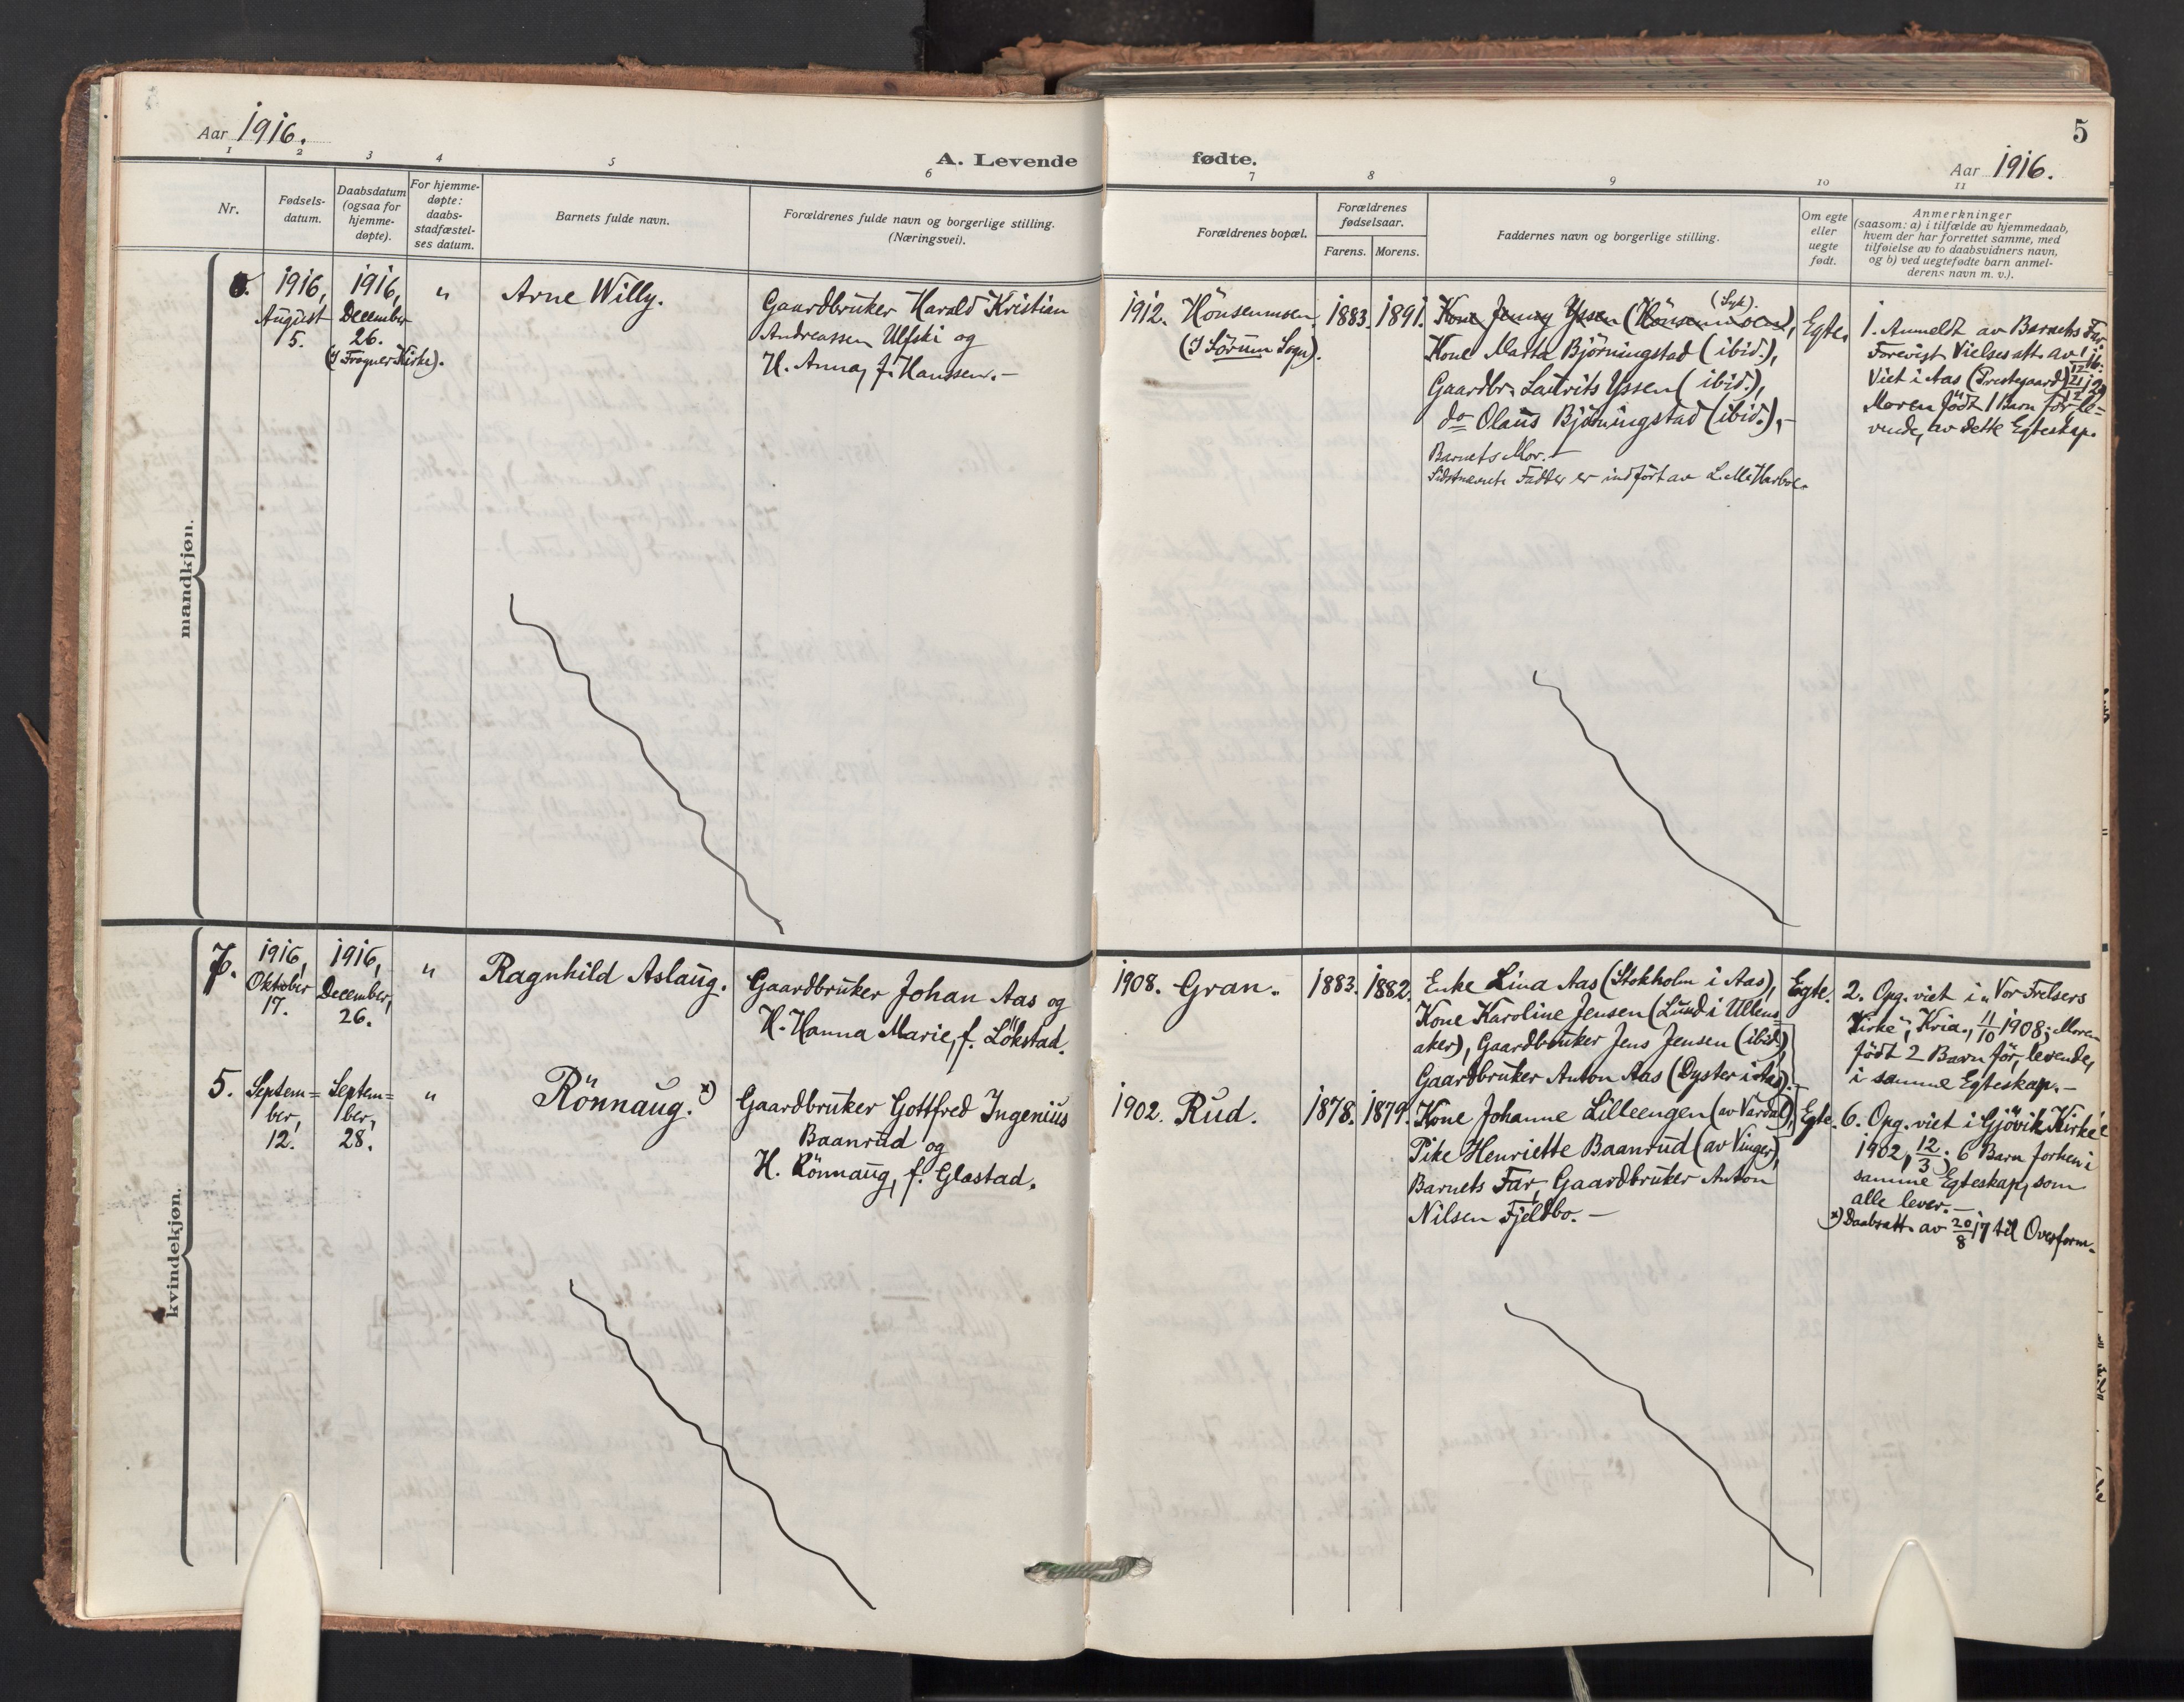 Aar 1916.
A. Levende fødte.
Aar 1916.
5
1 2 3 4 5 6 7 8 9 10 11
Nr.
Fødsels-
datum.
Daabsdatum
(ogsaa for
hjemme-
døpte).
For hjemme-
døpte:
daabs-
stadfæstel-
ses datum.
Barnets fulde navn.
Forældrenes fulde navn og borgerlige stilling.
(Næringsvei).
Forældrenes bopæl.
Forældrenes
fødselsaar.
Farens. Morens.
Faddernes navn og borgerlige stilling.
Om egte
eller
uegte
født.
Anmerkninger
(saasom: a) i tilfælde av hjemmedaab,
hvem der har forrettet samme, med
tilføielse av to daabsvidners navn,
og b) ved uegtefødte barn anmel-
derens navn m. v.).
mandkjøn.
1916,
August
5.
1916,
December
26.
(I Frogner Kirke).
"
Arne Willy.
Gaardbruker Harald Kristian
Andreassen Ulfski og
H. Anna, f. Hanssen.-
1912. Hönsenmoen.
(I Sörum Sogn).
1883. 1891.
(Syk).
Kone Jenny Yssen (Hönsenmoen),
Kone Marta Björningstad (ibid.),
Gaardbr. Laurits Yssen (ibid.),
do Olaus Björningstad (ibid.),-
Barnets Mor.-
Sidstnævnte Fadder er indført av L. Harboe.
Egte.
1. Anmeldt av Barnets Far.
Forevist Vielsesatt. av
Viet i Aas (Prestegaard)
Moren födt 1 Barn för, le=
vende, av dette Egteskap.
kvindekjøn.
7.
1916,
Oktober
17.
1916,
December,
26.
"
Ragnhild Aslaug.
Gaardbruker Johan Aas og
H. Hanna Marie, f. Lökstad.
1908. Gran.
1883. 1882.
Enke Lina Aas (Stokholm i Aas),
Kone Karoline Jensen (Lund i Ullens=
aker), Gaardbruker Jens Jensen (ibid),
Gaardbruker Anton Aas (Dyster i Aas).-
Egte.
2. Opg. viet i „Vor Frelsers
Kirke", Kria., 11/10 1908; Moren
födt 2 Barn för, levende,
i samme Egteskap.-
5.
Septem=
ber,
12.
Septem=
ber,
28.
"
Rönnaug. x)
Gaardbruker Gottfred Ingenius
Baanrud og
H. Rönnaug, f. Glæstad.
1902. Rud.
1878. 1879.
Kone Johanne Lilleengen (av Vardal),
Pike Henriette Baanrud (av Vinger),
Barnets Far, Gaardbruker Anton
Nilsen Fjeldbo.-
Egte.
6. Opg. viet i Gjövik Kirke
1902, 12/3; 6 Barn forhen i
samme Egteskap, som
alle lever.-
x) Daabsatt. av 20/8 17 til Overform.